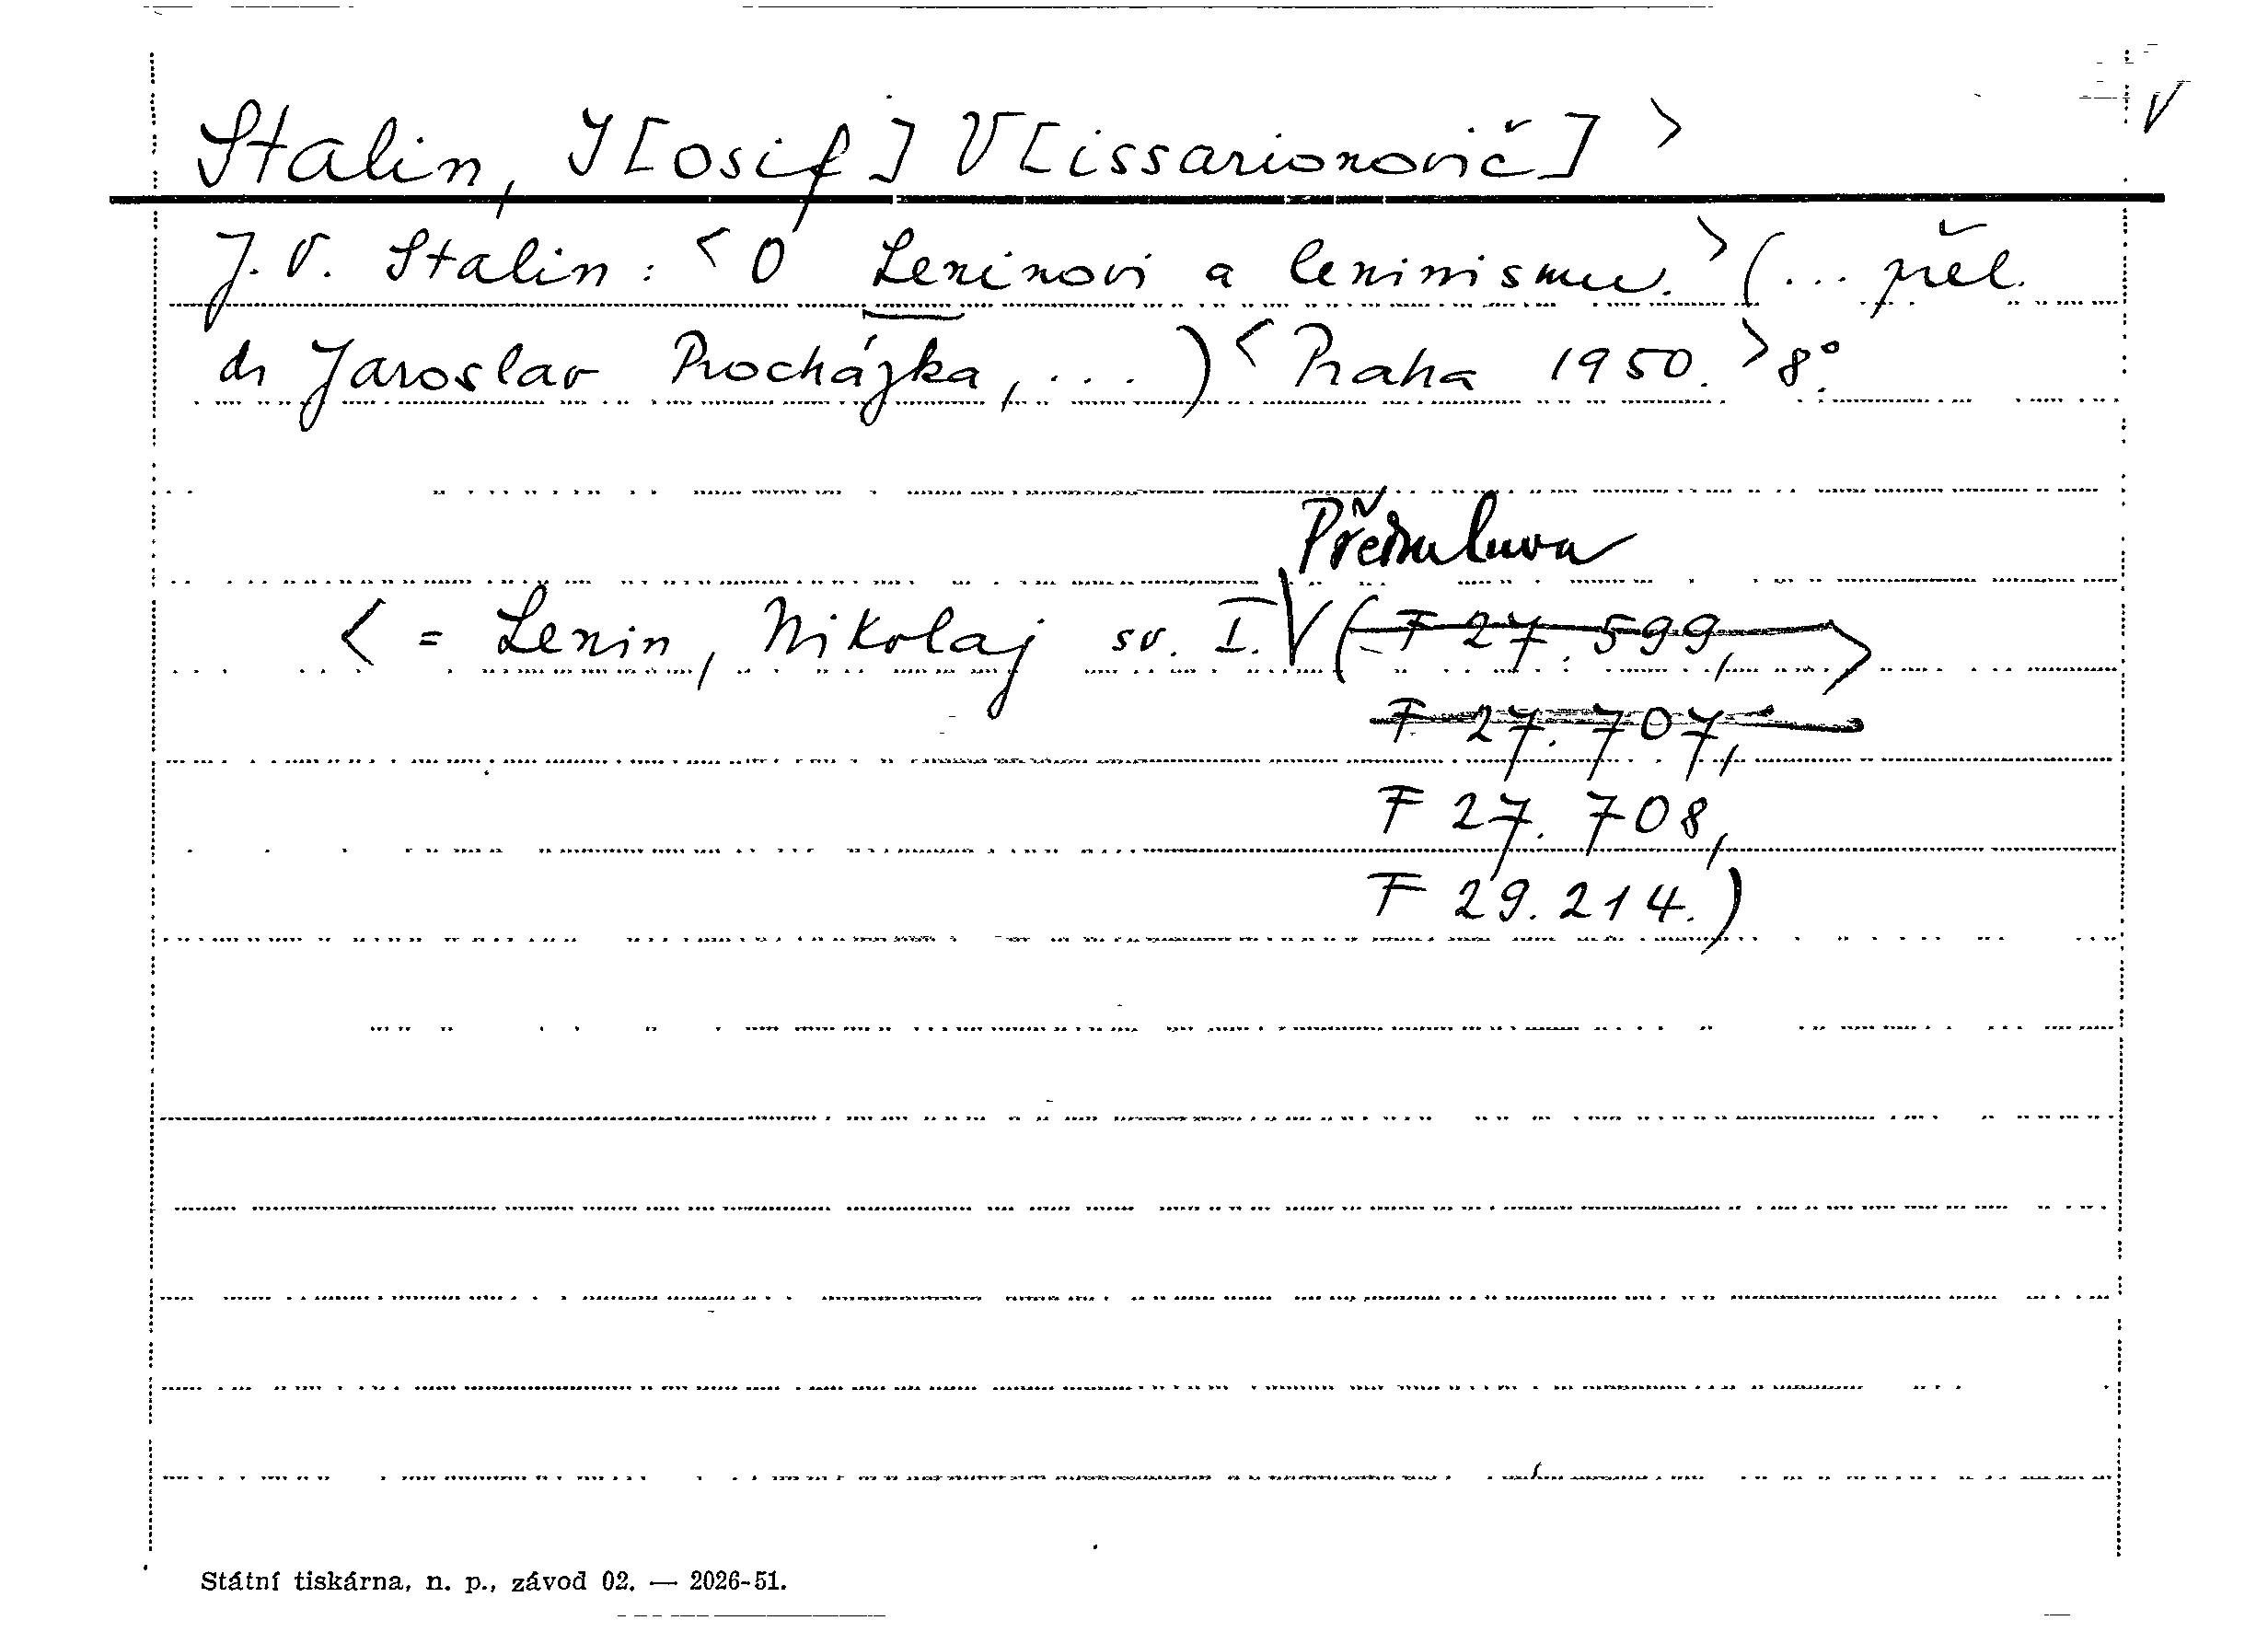 V
Stalin, J[osif] V[issarionovič] >
J. V. Stalin: <O Leninovi a leninismu.> (... přel.
dr Jaroslav Procházka, ...) <Praha 1950.> 8°.
Předmluva
< = Lenin, Nikolaj sv. I. V (F 27.599, >
F 27.707,
F 27.708,
F 29.214.)
Státní tiskárna, n. p., závod 02. — 2026-51.